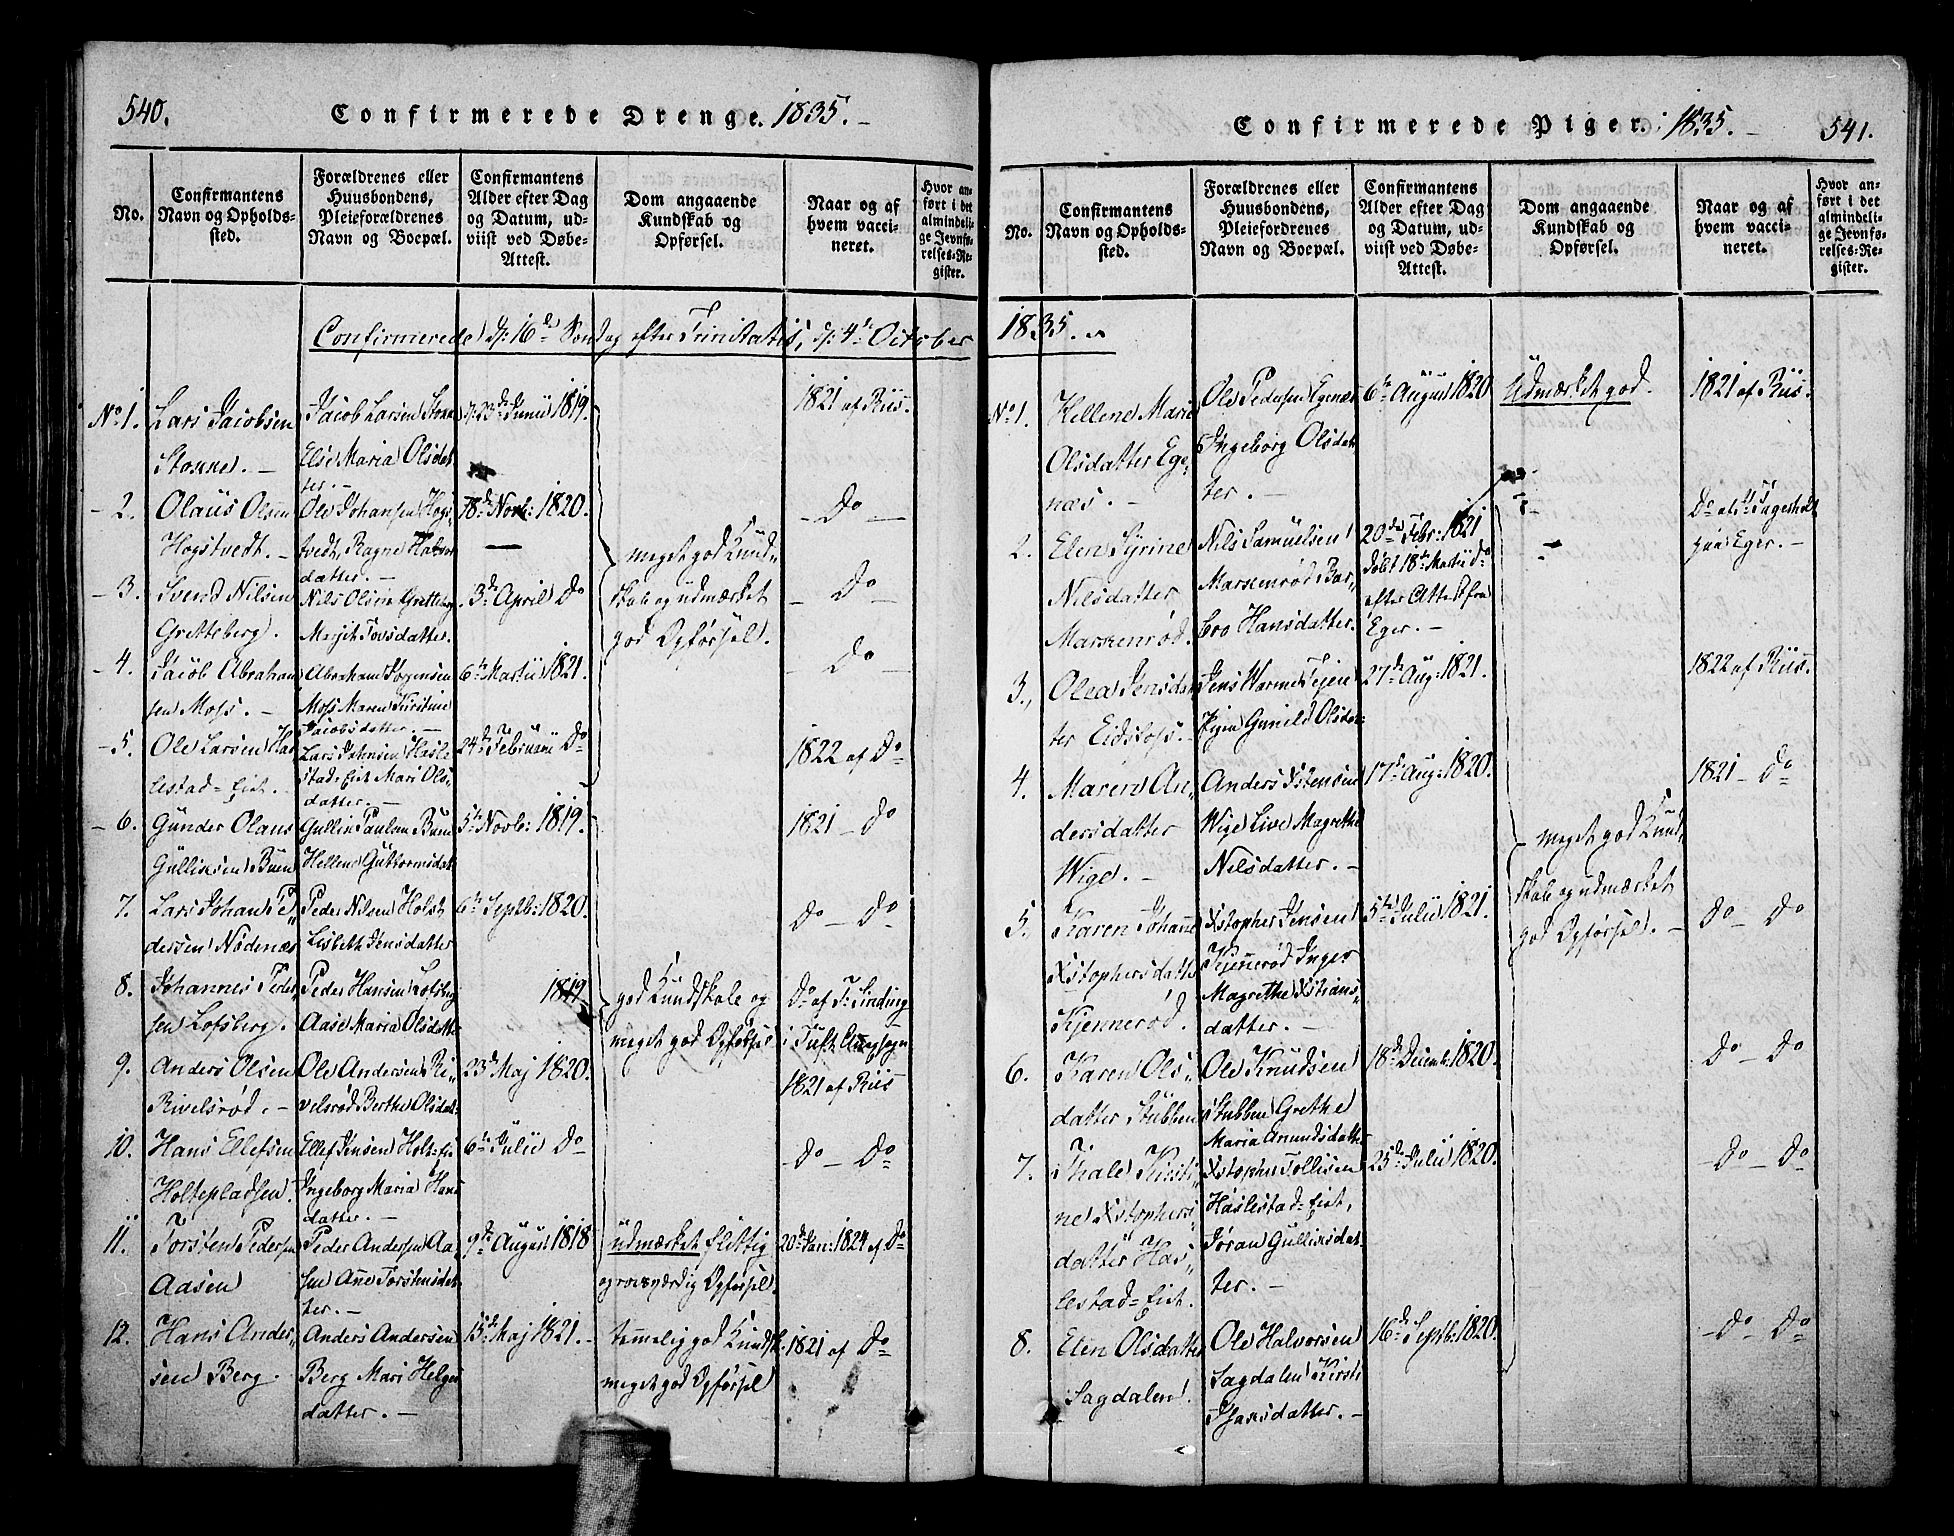 540.
Confirmerede Drenge. 1835. –
No.
Confirmantens
Navn og Opholds-
sted.
Forældrenes eller
Huusbondens,
Pleieforældrenes
Navn og Boepæl.
Confirmantens
Alder efter Dag
og Datum, ud-
viist ved Døbe-
Attest.
Dom angaaende
Kundskab og
Opførsel.
Naar og af
hvem vacci-
neret.
Hvor an-
ført i det
almindeli-
ge Jevnfø-
relses-Re-
gister.
Confirmerede d: 16de Søndag efter Trinitatis, d: 4de October
No 1.
Lars Jacobsen
Stokke. –
Jacob Larsen Stokke
Else Maria Olsdat
ter. –
d: 23de Junii 1819.
1821 af Riis.
– 2.
Olaus Olsen
Hogstvedt. –
Ole Johansen Hogs
tvedt, Ragne
datter. –
18de Novb: 1820.
– Do –
– 3.
Svend Nilsen
Gretteberg.
Nils Olsen Gretteberg
Margit Tovsdatter.
13de April Do
– Do –
meget god Kund„
skab og udmærket
god Opførsel.
– 4.
Jacob Abraham
sen Moss. –
Abraham Jørgensen
Moss Maren Kirstine
Jacobsdatter. –
6te Martii 1821.
– Do –
– 5.
Ole Larsen Has
lestad-Eiet. –
Lars Johnsen Hasle
stad-Eiet Mari Ols
datter. –
24de Februarii Do
1822 af Do
– 6.
Gunder Olaus
Gulliksen Buen
Gullik Paulsen Buen
Hellene Guttormsdatt
5te Novb: 1819.
1821 – Do
7.
Lars Johan Pe„
dersen Nødenæs
Peder Nilsen Holst
Lisbeth Jensdatter
6te Septb: 1820.
Do – Do
8.
Johannes Peder
sen Lofsberg.
Peder Hansen Lofsberg
Aase Maria Olsdatter
1819
god Kundskab og
meget god Opførsel
Do af P: Sinding
i Tuft Annexsogn
9.
Anders Olsen
Rivelsrød. –
Ole Andersen Ri„
velsrød Berthe Olsdat.
23de Maj 1820.
1821 af Riis
10.
Hans Ellefsen
Holtepladsen.
Ellef Jensen Holt-Ei
Ingeborg Maria Hans
datter. –
6te Julii Do
– Do – Do
11.
Torsten Pedersen
Aasen
Peder Andersen Aa„
sen Ane Torstensdat
ter. –
9de August 1818
udmærket flittig
og roesværdig Opførsel.
20de Jan: 1824 af Do
12.
Hans Ander„
sen Berg.
Anders Andersen
Berg Mari Helges
datter. –
15de Maj 1821. –
temmelig god Kundsk.
meget god Opførsel
1821 af Do
Confirmerede Piger. 1835. –
541.
No.
Confirmantens
Navn og Opholds-
sted.
Forældrenes eller
Huusbondens,
Pleiefordrenes
Navn og Boepæl.
Confirmantens
Alder efter Dag
og Datum, ud-
viist ved Døbe-
Attest.
Dom angaaende
Kundskab og
Opførsel.
Naar og af
hvem vacci-
neret.
Hvor an-
ført i det
almindeli-
ge Jevnfø-
relses-Re-
gister.
1835.
No. 1.
Hellene Marie
Olsdatter Ege„
næs. –
Ole Pedersen Egenæs
Ingeborg Olsdat
ter. –
6te August 1820
Udmærket god.
1821 af Riis.
2.
Elen Syrine
Nilsdatter
Markenrød.
Nils Samuelsen
Markenrød Bar„
bro Hansdatter.
20de Febr: 1821
døbt 18de Martii Do
efter Attest fra
Eger. –
Do af
paa Eger. –
3.
Olea Jensdat
ter Eidsfoss.
Jens
Pigen Gunild Olsdat.
27de Aug: 1821.
1822 af Riis.
4.
Maren An„
dersdatter
Wige. –
Anders Xstensen
Wige Live Magrethe
Nilsdatter. –
17de Aug: 1820.
1821 – Do
meget god Kund„
skab og udmærket
god Opførsel. –
5.
Karen Johanne
Xstophersdatter
Kjennerød.
Xstopher Jensen
Kjennerød Inger
Magrethe Xstians„
datter. –
5te Julii 1821.
Do – Do
6.
Karen Ols„
datter Stubben
Ole Knudsen
Stubben Grethe
Maria Amundsdatter
18de Decemb: 1820.
Do – Do
7.
Thale Kirsti„
ne Xstophers„
datter Has„
lestad-Eiet.
Xstopher Tollefsen
Haslestad-Eiet,
Jøran Gulliksdat„
ter. –
25de Julii 1820.
– Do – Do
8.
Elen Olsdatter
Sagdalen.
Ole Halvorsen
Sagdalen Kirsti
Isaksdatter. –
16de Septb: 1820.
– Do – Do